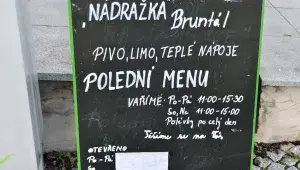 NÁDRAŽKA
Bruntál
PIVO, LIMO, TEPLÉ NÁPOJE
POLEDNÍ MENU
VAŘÍME: Po-Pá 11:00-15:30
So, Ne 11:00-15:00
Polévky po celý den
Těšíme se na Vás
OTEVŘENO
Po-Pá
So